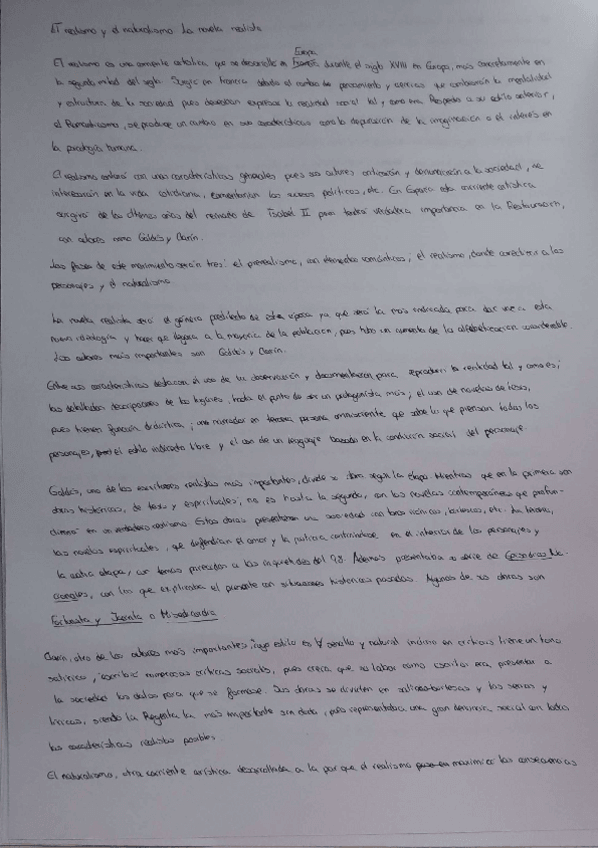 El realismo y el naturalismo. La novela realista
El realismo es una corriente artística que se desarrolla en Europa durante el siglo XVIII en Europa, más concretamente en
la segunda mitad del siglo. Surgió en Francia debido al cambio de pensamiento y que cambiarán la mentalidad
y estructura de la sociedad pues deseaban expresar la realidad social tal y como era. Respecto a su estilo anterior,
el Romanticismo, se produce un cambio en sus características como la depuración de la imaginación o el interés en
la psicología humana.
El realismo contará con unas características generales pues sus autores criticarán y denunciarán a la sociedad, se
interesarán en la vida cotidiana, comentarían los sucesos políticos, etc. En España esta corriente artística
surgirá de los últimos años del reinado de Isabel II pero tendrá verdadera importancia en la Restauración,
con autores como Galdós y Clarín.
Las fases de este movimiento serán tres: el prerrealismo, con elementos románticos, el realismo, donde a los
personajes y el naturalismo
La novela realista será el género predilecto de esta época ya que será la más indicada para dar voz a esta
nueva ideología y hacer que llegara a la mayoría de la población, pues hubo un aumento de la alfabetización considerable.
Los autores más importantes son Galdós y Clarín.
Entre sus características destacan el uso de la observación y documentación para reproducir la realidad tal y como es;
las detalladas descripciones de los lugares, hasta el punto de ser un protagonista más; el uso de novelas de tesis,
pues tienen función didáctica; una narrador en tercera persona omnisciente que sabe lo que piensan todos los
personajes, el estilo indirecto libre y el uso de un lenguaje basado en la condición social del personaje.
Galdós, uno de los escritores realistas más importantes, divide su obra según la etapa. Mientras que en la primera son
obras históricas, de tesis y espirituales, no es hasta la segunda, con las novelas contemporáneas que profun-
en su verdadero realismo. Estas obras presentaban una sociedad con tonos irónicos, etc. La tercera,
las novelas espirituales, que defendían el amor y la justicia centrándose en el interior de los personajes y
la última etapa, con temas parecidos a las inquietudes del 98. Además presentaba su serie de Episodios Na-
cionales, con los que explicaba el presente con situaciones históricas pasadas. Algunas de sus obras son
Fortunata y Jacinta o Misericordia
Clarín, otro de los autores más importantes, cuyo estilo es sencillo y natural en críticas tiene un tono
satírico, escribió numerosas críticas sociales, pues creía que su labor como escritor era presentar a
la sociedad los datos para que se formase. Sus obras se dividen en satírico-burlescas y las serias y
líricas, siendo la Regenta la más importante sin duda, pues representaba una gran denuncia social con todas
las características realistas posibles.
El naturalismo, otra corriente artística desarrollada a la par que el realismo maximizar las